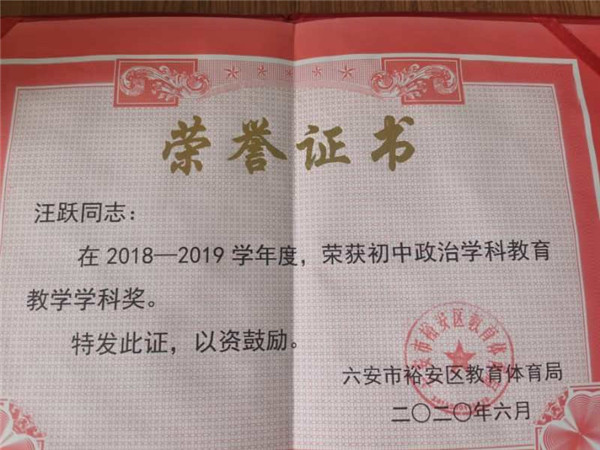 荣誉证书
汪跃同志：
在2018—2019学年度，荣获初中政治学科教育
教学学科奖。
特发此证，以资鼓励。
六安市裕安区教育体育局
六安市裕安区教育体育局
二〇二〇年六月